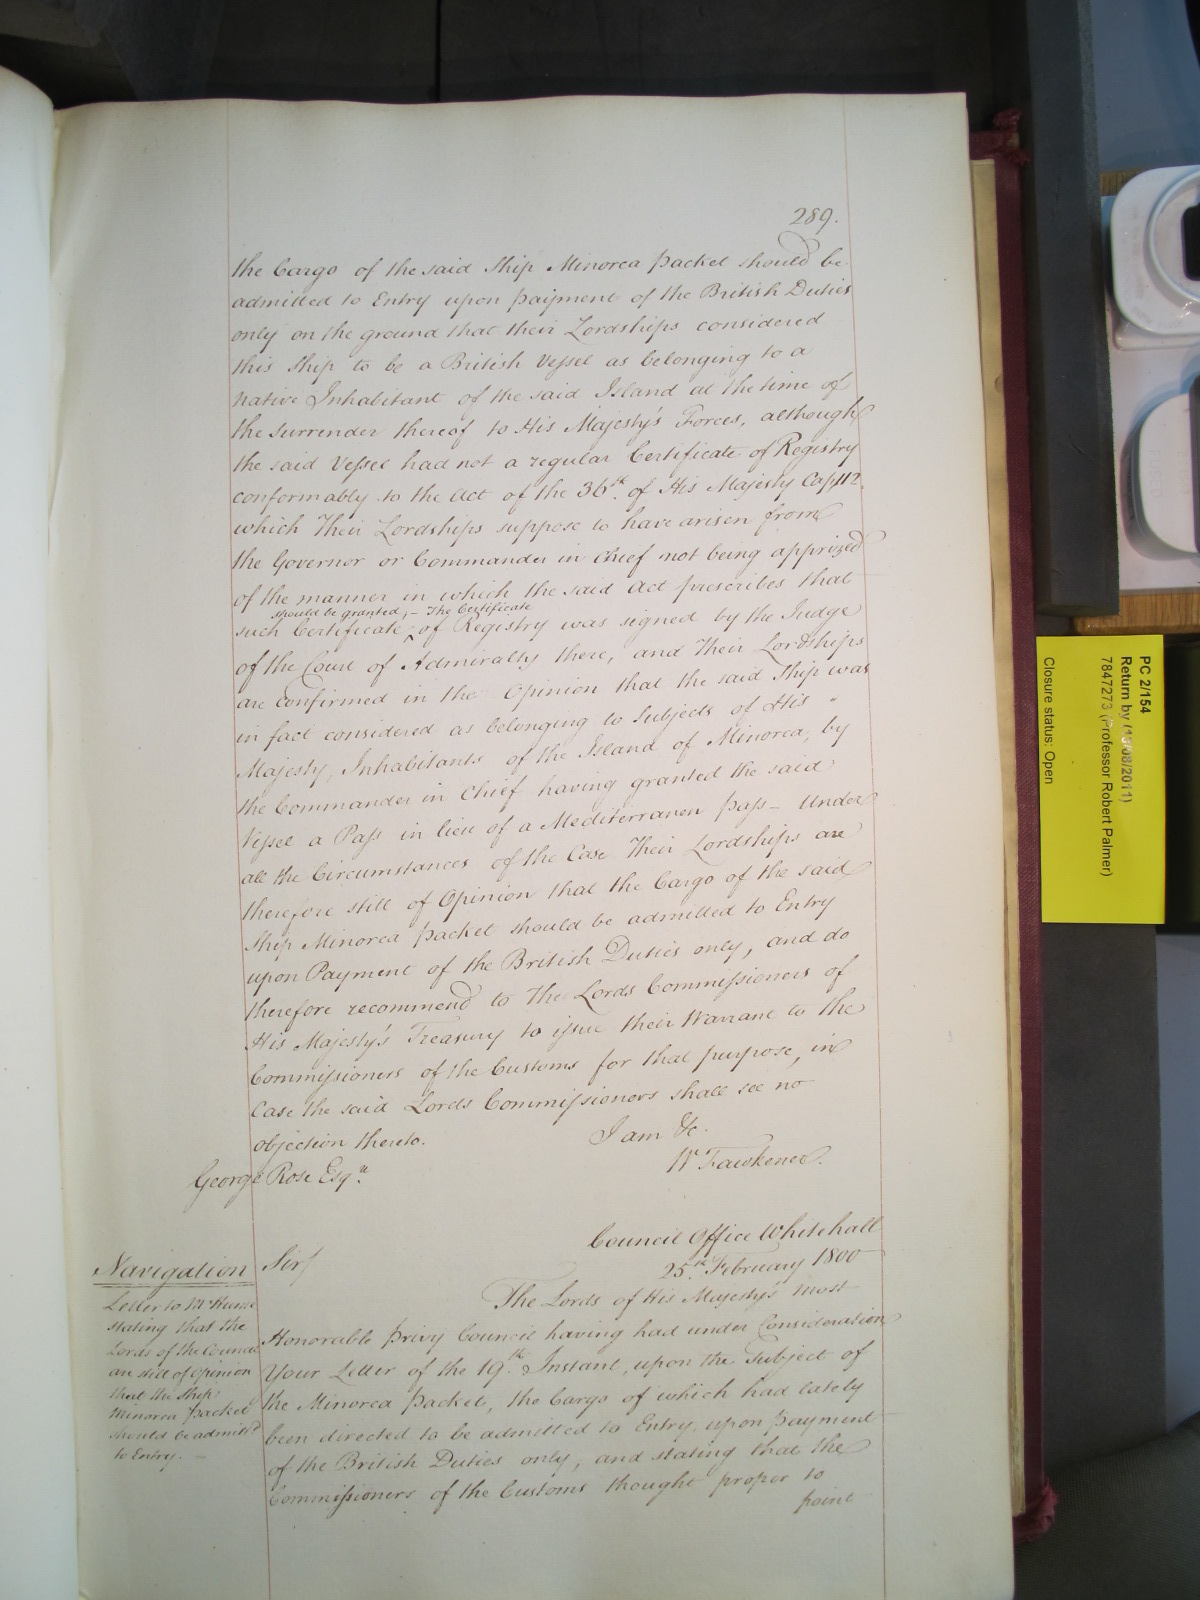 289.
the Cargo of the said Ship Minorca Packet should be
admitted to Entry upon payment of the British Duties
only on the ground that their Lordships considered
this Ship to be a British Vessel as belonging to a
native Inhabitant of the said Island at the time of
the surrender thereof to His Majesty's Forces, although
the said Vessel had not a regular Certificate of Registry
conformably to the Act of the 36th. of His Majesty Cap 112.
which Their Lordships suppose to have arisen from
the Governor or Commander in Chief not being apprized
of the manner in which the said Act prescribes that
should be granted; – The Certificate
such Certificate ^ of Registry was signed by the Judge
of the Court of Admiralty there, and Their Lordships
are confirmed in the Opinion that the said Ship was
in fact considered as belonging to Subjects of His
Majesty, Inhabitants of the Island of Minorca, by
the Commander in Chief having granted the said
Vessel a Pass in lieu of a Mediterranen Pass – Under
all the Circumstances of the Case Their Lordships are
therefore still of Opinion that the Cargo of the said
Ship Minorca Packet should be admitted to Entry
upon Payment of the British Duties only, and do
therefore recommend to The Lords Commissioners of
His Majesty's Treasury to issue their Warrant to the
Commissioners of the Customs for that purpose, in
Case the said Lords Commissioners shall see no
objection thereto.
I am &c.
W Fawkener.
George Rose Esqr.
Council Office Whitehall
25th. February 1800
Navigation
Letter to Mr Hume
stating that the
Lords of the Council
are still of Opinion
that the Ship
Minorca Packet
should be admitt'd
to Entry. –
Sir/
The Lords of His Majesty's most
Honorable Privy Council having had under Consideration
Your Letter of the 19th. Instant, upon the Subject of
the Minorca Packet, the Cargo of which had lately
been directed to be admitted to Entry, upon payment
of the British Duties only, and stating that the
Commissioners of the Customs thought proper to
point
PC 2/154
Return by (13/08/2011)
7847273 (Professor Robert Palmer)
Closure status: Open